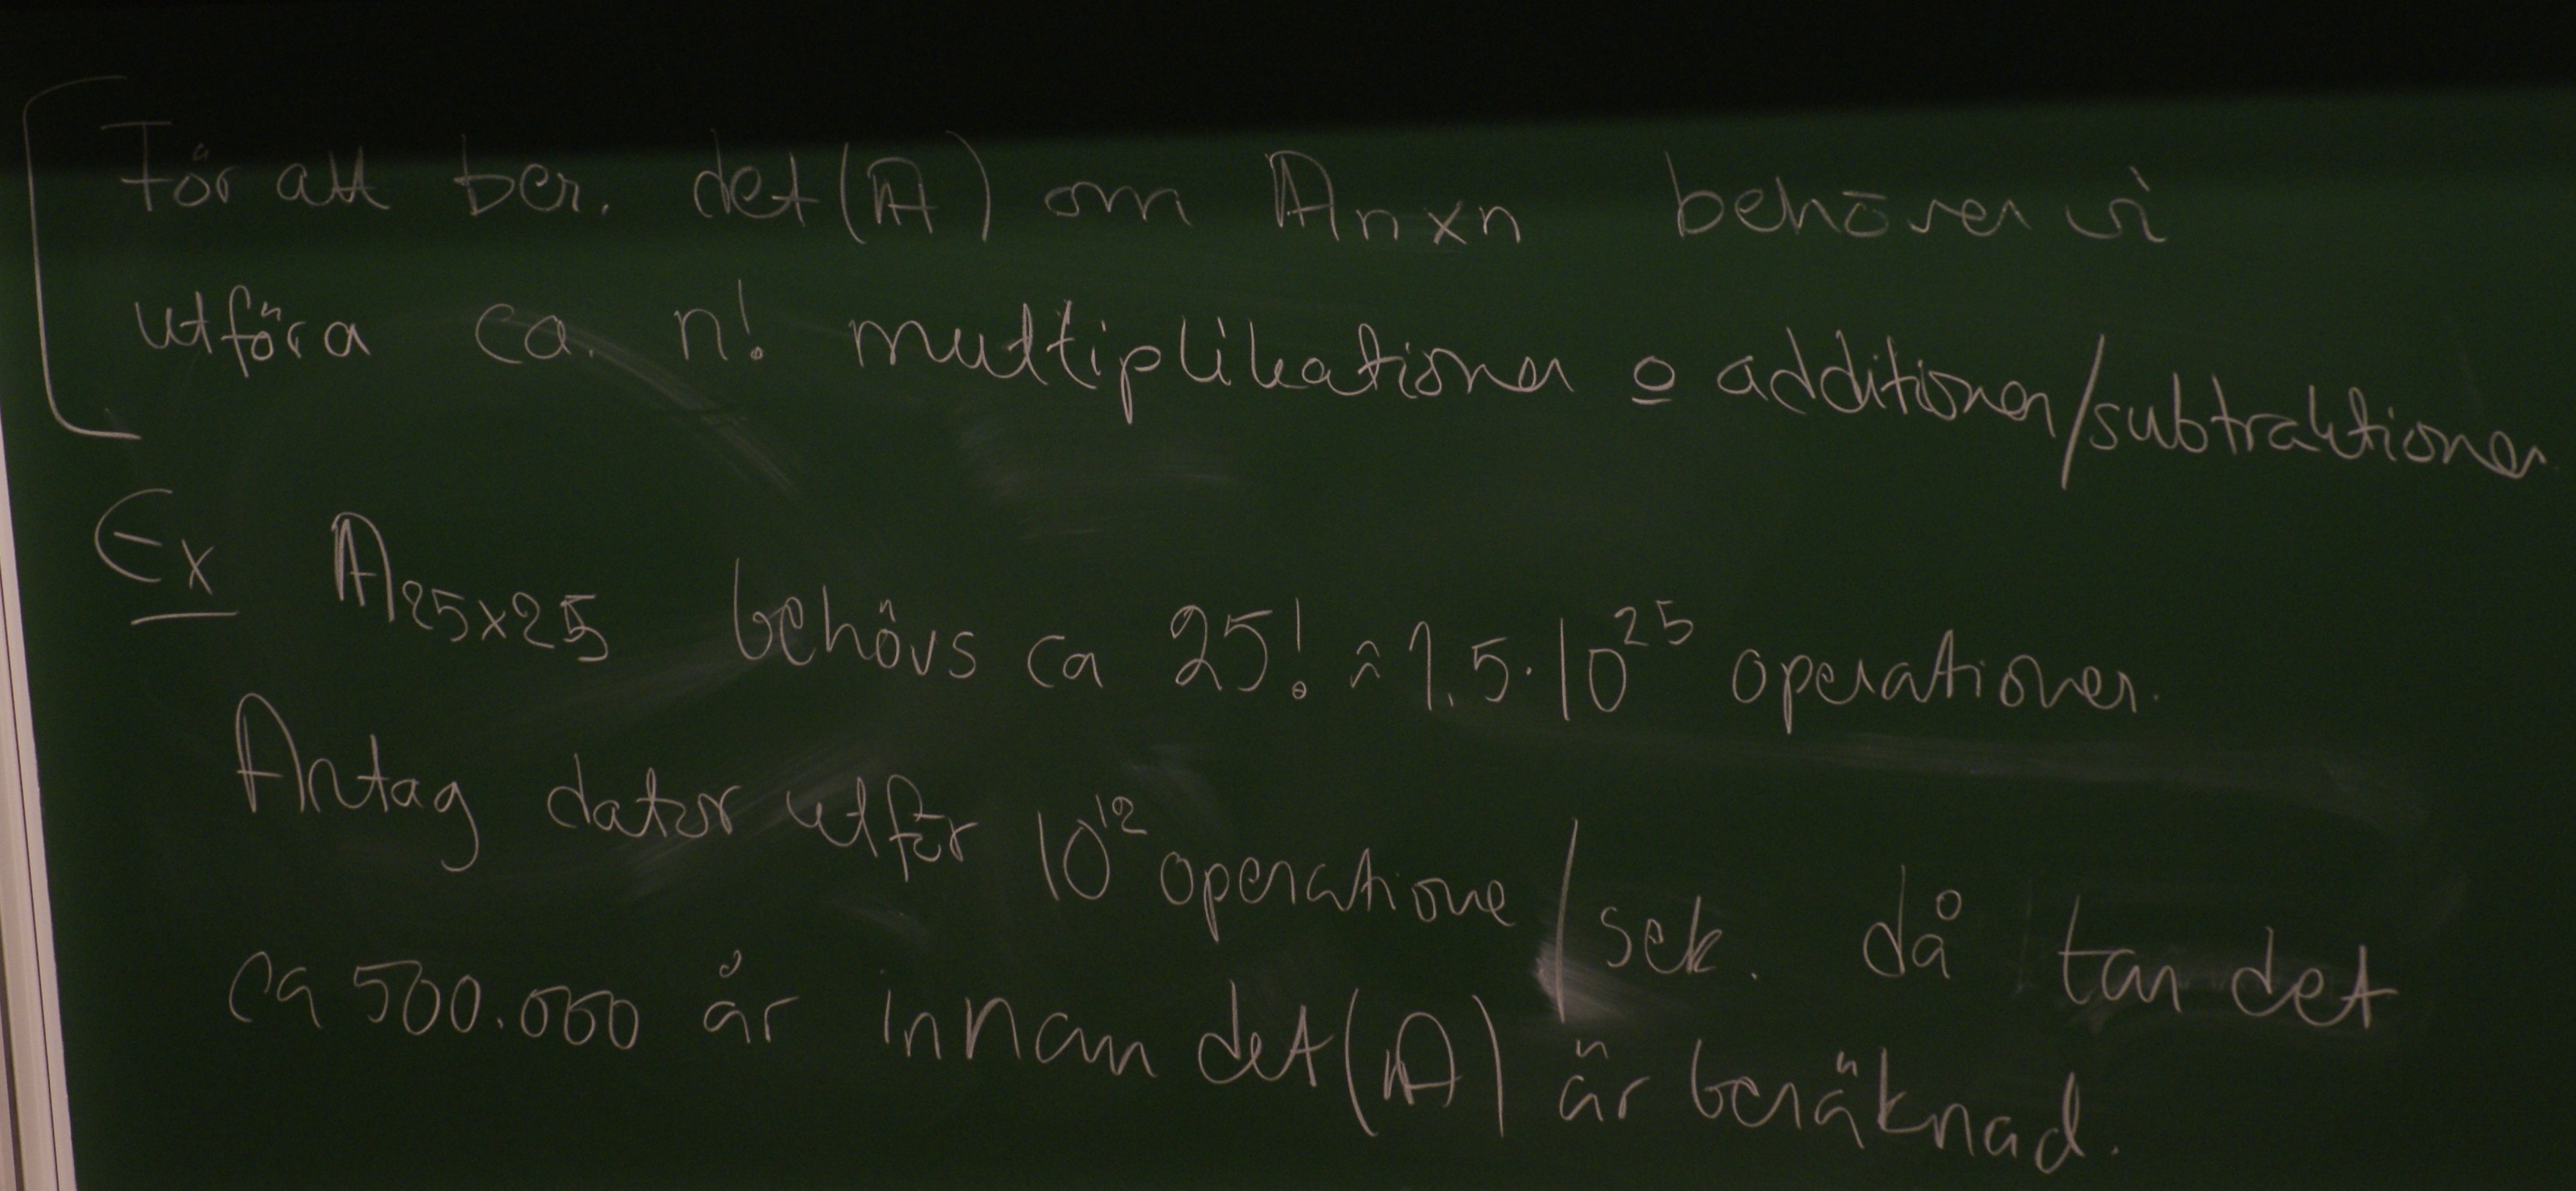 För att ber. det(A) om Anxn behöver vi
utföra ca. n! multiplikationer o additioner/subtraktioner
Ex A25x25 behövs ca 25! ≈ 1.5·10^25 operationer.
Antag dator utför 10^12 operatione/sek. då tar det
ca 500.000 år innan det(A) är beräknad.